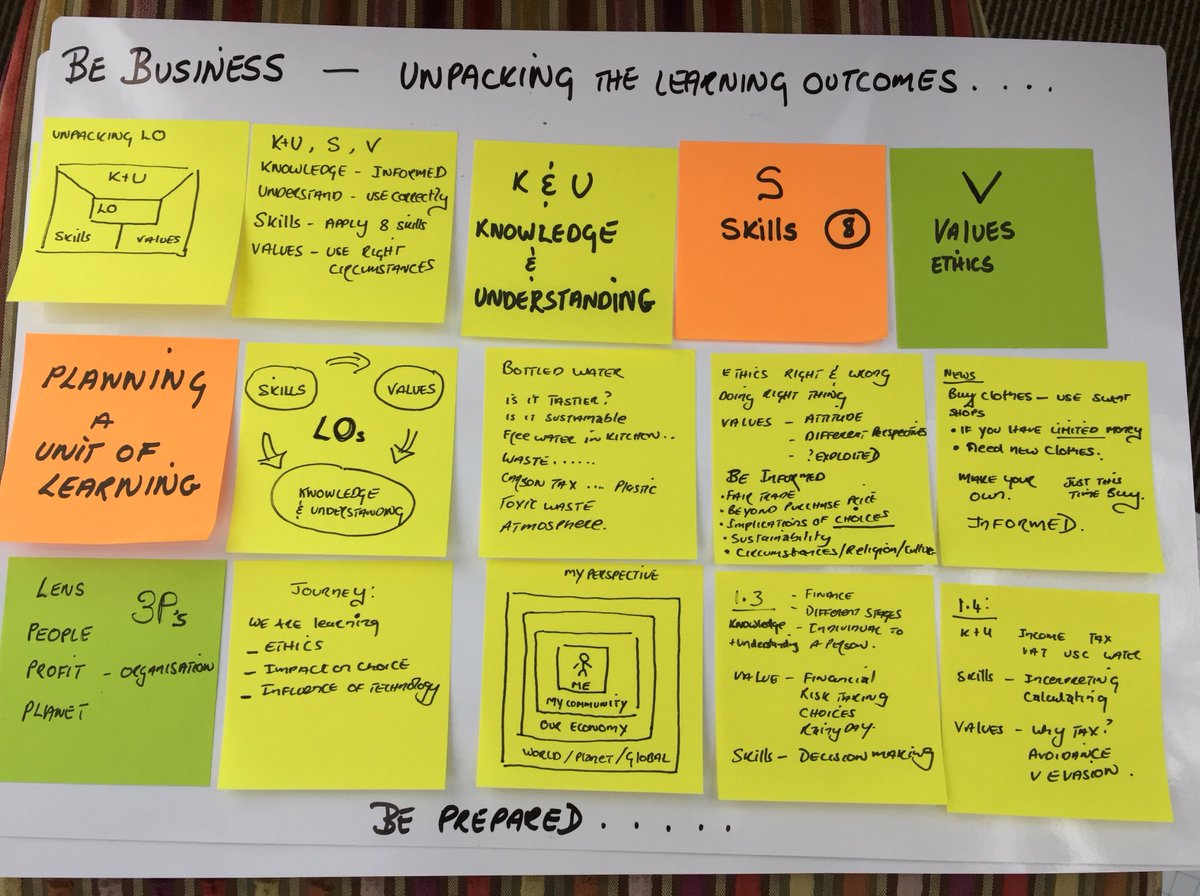 BE BUSINESS — UNPACKING THE LEARNING OUTCOMES....
UNPACKING LO
K+U
LO
SKILLS
VALUES
K+U, S, V
KNOWLEDGE - INFORMED
UNDERSTAND - USE CORRECTLY
SKILLS - APPLY 8 SKILLS
VALUES - USE RIGHT
CIRCUMSTANCES
K & U
KNOWLEDGE
&
UNDERSTANDING
S
SKILLS 8
V
VALUES
ETHICS
PLANNING
A
UNIT OF
LEARNING
SKILLS
VALUES
LOs
KNOWLEDGE
& UNDERSTANDING
BOTTLED WATER
IS IT TASTIER?
IS IT SUSTAINABLE
FREE WATER IN KITCHEN..
WASTE......
CARBON TAX ... PLASTIC
TOXIC WASTE
ATMOSPHERE.
ETHICS RIGHT & WRONG
DOING RIGHT THING
VALUES - ATTITUDE
- DIFFERENT PERSPECTIVES
- ? EXPLOITED
BE INFORMED
• FAIR TRADE
• BEYOND PURCHASE PRICE
• IMPLICATIONS OF CHOICES
• SUSTAINABILITY
• CIRCUMSTANCES/RELIGION/CULTURE
NEWS
BUY CLOTHES - USE SWEAT
SHOPS
• IF YOU HAVE LIMITED MONEY
• NEED NEW CLOTHES.
MAKE YOUR
OWN.
JUST THIS
TIME BUY.
INFORMED.
LENS
3P's
PEOPLE
PROFIT - ORGANISATION
PLANET
JOURNEY:
WE ARE LEARNING
- ETHICS
- IMPACT ON CHOICE
- INFLUENCE OF TECHNOLOGY
MY PERSPECTIVE
ME
MY COMMUNITY
OUR ECONOMY
WORLD/PLANET/GLOBAL
1.3 - FINANCE
- DIFFERENT STAGES
KNOWLEDGE - INDIVIDUAL TO
+UNDERSTANDING A PERSON.
VALUE - FINANCIAL
RISK TAKING
CHOICES
RAINY DAY.
SKILLS - DECISION MAKING
1.4:
K+U INCOME TAX
VAT USC WATER
SKILLS - INTERPRETING
CALCULATING
VALUES - WHY TAX?
AVOIDANCE
V EVASION.
BE PREPARED.....